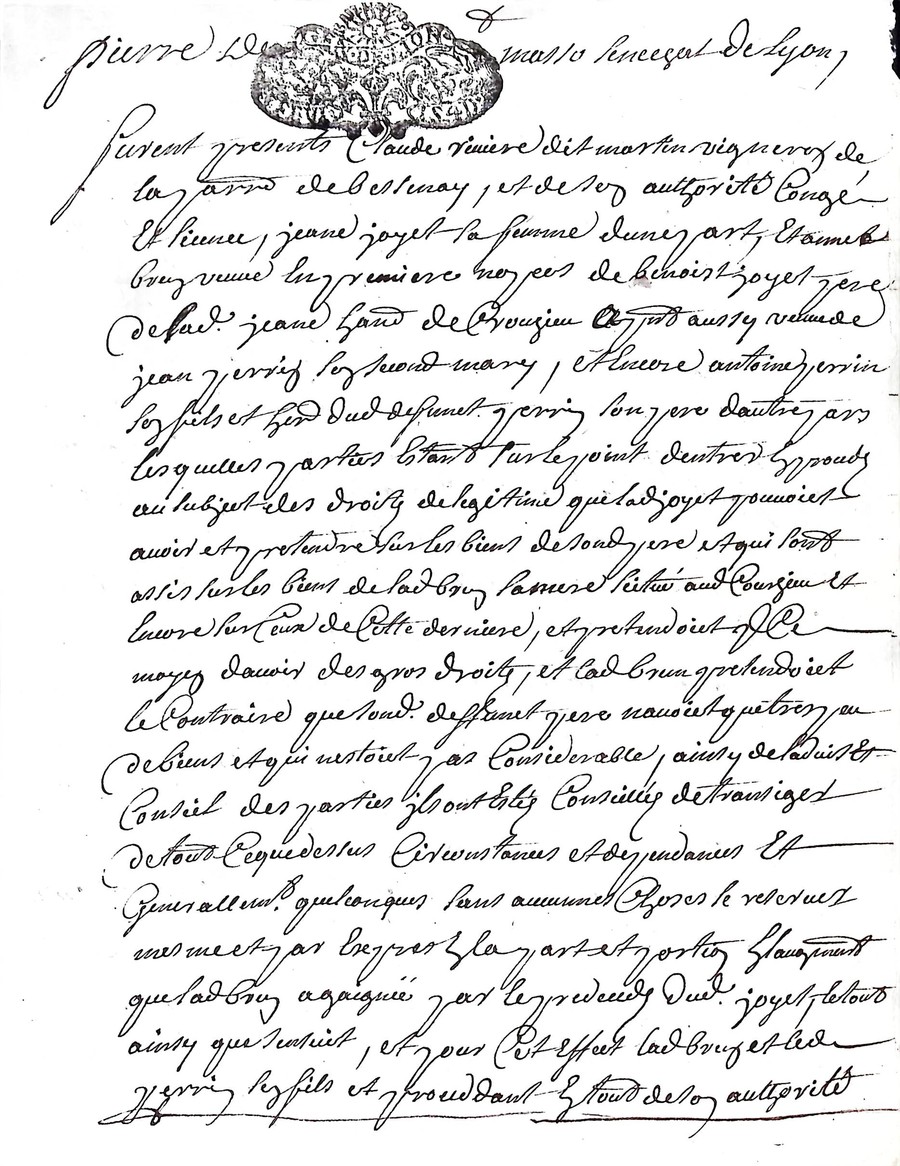 pierre de masso seneschal de Lyon,
furent presents Claude riviere dit martin vigneron de
la parro de bessenay, et de son authorité Congé
Et licence, jeane joyet sa femme dune part, Et annet
brun veuve En premiere nopces de benoist joyet pere
de lad. jeane habd de Courzieu aussy veuve de
jean perrin son second mary, et Encore antoine perrin
son fils et herd dud defunct perrin son pere dautre part
lesquelles parties Estant sur le point dentrer En proces
au subject des droits de legitime que lad joyet pouvoict
avoir et pretendre sur les biens de sond pere et qui sont
assis sur les biens de lad brun sa mere scitué aud Courzieu Et
Encore sur Ceux de Cette derniere, et pretendoict p Ce
moyen davoir des gros droits, et lad brun pretendoict
le Contraire que sond. deffunct pere navoict que tres peu
de biens et qui nestoict pas Considerable, ainsy de ladvis Et
Conseil des parties ils ont Estés Conseillés de transiger
de tout Ce que dessus Circonstances et dependances Et
Generallemt. quelconques sans aucunnes Choses se reserver
mesme et par Expres En la part et portion En laugment
que lad brun a gaigniée par le predeceds dud. joyet, le tout
ainsy que sensuict, et pour Cet Effect lad brun et led
perrin son fils et procedant Estant de son authorité